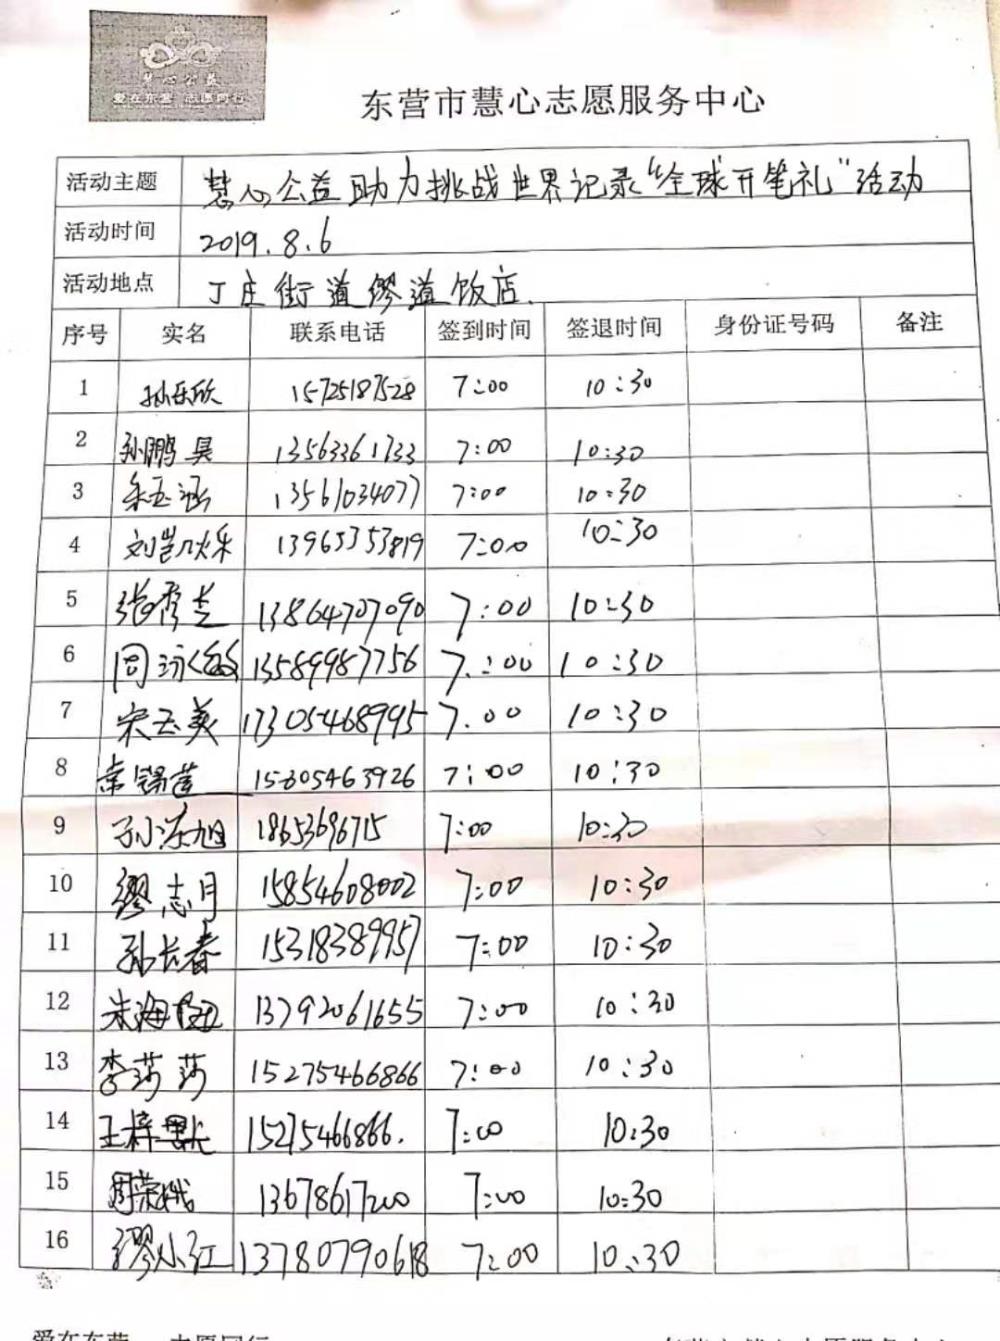 慧心公益
爱在东营 志愿同行
东营市慧心志愿服务中心
活动主题 慧心公益助力挑战世界记录“全球开笔礼”活动
活动时间 2019.8.6
活动地点 丁庄街道缪道饭店.
序号 实名 联系电话 签到时间 签退时间 身份证号码 备注
1 孙乐欣 15725187528 7:00 10:30
2 孙鹏昊 13563361733 7:00 10:30
3 朱玉涵 13561034077 7:00 10:30
4 刘岂 13965353819 7:00 10:30
5 张秀芝 13864707090 7:00 10:30
6 周 13589987756 7:00 10:30
7 宋玉美 17305468995 7.00 10:30
8 常锡莲 15805463926 7:00 10:30
9 孙洪旭 18653696715 7:00 10:30
10 缪志月 15854608002 7:00 10:30
11 孙长春 15318389957 7:00 10:30
12 朱海 13792061655 7:00 10:30
13 李莎莎 15275466866 7:00 10:30
14 王梓 15275466866. 7:00 10:30
15 周荣娥 13678617200 7:00 10:30
16 缪小红 13780790618 7:00 10:30
爱在东营 志愿同行 东营市慧心志愿服务中心